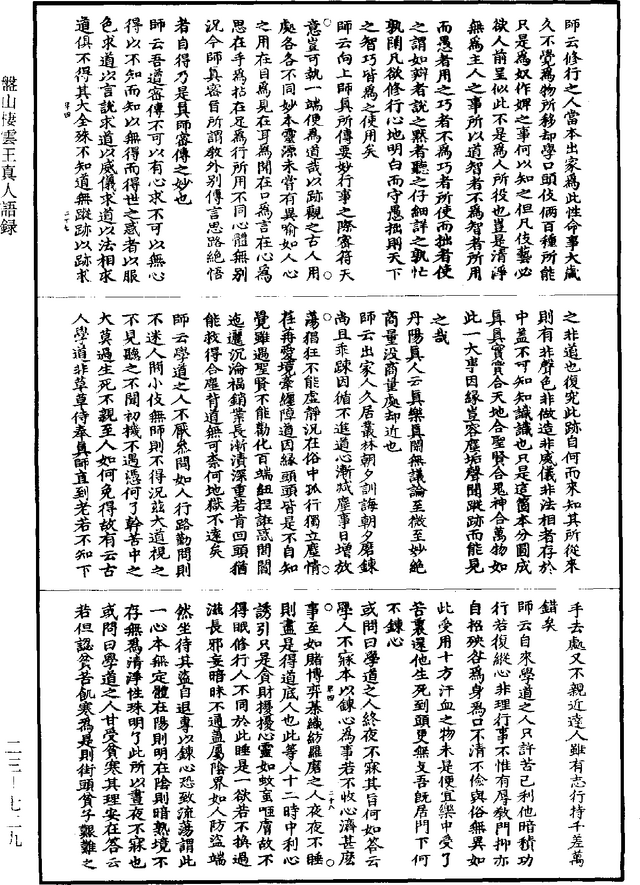 盤山棲雲王真人語錄
師云修行之人當本出家為此性命事大歲
久不覺為物所移却學口頭伎倆百種所能
只是為奴作婢之事何以知之但凡伎藝必
欲人前呈似此不是為人所役也豈是清淨
無為主人之事所以道智者不為智者所用
而愚者用之巧者不為巧者所使而拙者使
之謂如辯者說之黙者聽之仔細詳之孰忙
孰閑凡欲修行心地明白而守愚拙則天下
之智巧皆為之使用矣
師云向上師真所傳要妙行事之際密符天
意豈可執一端便為道哉以跡觀之古人用
處各各不同妙本靈源未甞有異喻如人心
之用在目為見在耳為聞在口為言在心為
思在手為拈在足為行所用不同心體無別
況今師真密旨所謂教外別傳言思路絕悟
者自得乃是真師密傳之妙也
師云吾道密傳不可以有心求不可以無心
得以不知而知以無得而得世之惑者以服
色求道以言說求道以威儀求道以法相求
道俱不得其大全殊不知道無蹤跡以跡求
之非道也復究此跡自何而來知其所從來
則有非聲色非做造非威儀非法相者存於
中蓋不可知知識識也只是這箇本分圓成
真真實實合天地合聖賢合鬼神合萬物如
此一大事因緣豈容塵垢聲聞蹤跡而能見
之哉
丹陽真人云真樂真閑無議論至微至妙絕
商量没商量處却近也
師云出家人久居叢林朝夕訓誨朝夕磨鍊
尚且乖踈因循不進道心漸減塵事日增放
蕩猖狂不能虛靜況在俗中孤行獨立塵情
荏苒愛境牽纏障道因緣頭頭皆是不自知
覺雖遇聖賢不能勸化百端紐捏誑惑閭閻
迤邐沉淪福銷業長漸漬深重若肯回頭猶
能救得合塵背道無可柰何地獄不遠矣
師云學道之人不厭參問如人行路勤問則
不迷人間小伎無師則不得況茲大道視之
不見聽之不聞初機不遇憑何了幹苦中之
大莫過生死不親至人如何免得故有云古
人學道非草草侍奉真師直到老若不知下
手去處又不親近達人雖有志行持千差萬
錯矣
師云自來學道之人只許苦已利他暗積功
行若復縱心非理行事不惟有辱教門抑亦
自招殃咎為身為口不清不儉與俗無異如
此受用十方汗血之物未是便宜樂中受了
苦裏還他生死到頭更無支吾旣居門下何
不鍊心
或問曰學道之人終夜不寐其旨何如答云
學人不寐本以鍊心為事若不收心濟甚麼
事至如賭博弈碁織紡羅磨之人夜夜不睡
則盡是得道底人也此等人十二時中利心
誘引只是貪財擾擾心靈如蚊䖟咂膚故不
得眠修行人不同於此睡是一欲若不換過
滋長邪妄暗昧不通蓋屬陰界如人防盜端
然坐待其盜自退專以鍊心恐致流蕩謂此
一心本無定體在陽則明在陰則暗熟境不
存無為清淨性珠明了此所以晝夜不寐也
或問曰學道之人甘受貧寒其理安在答云
若但認貧苦飢寒為是則街頭貧子艱難之
二三—七二九